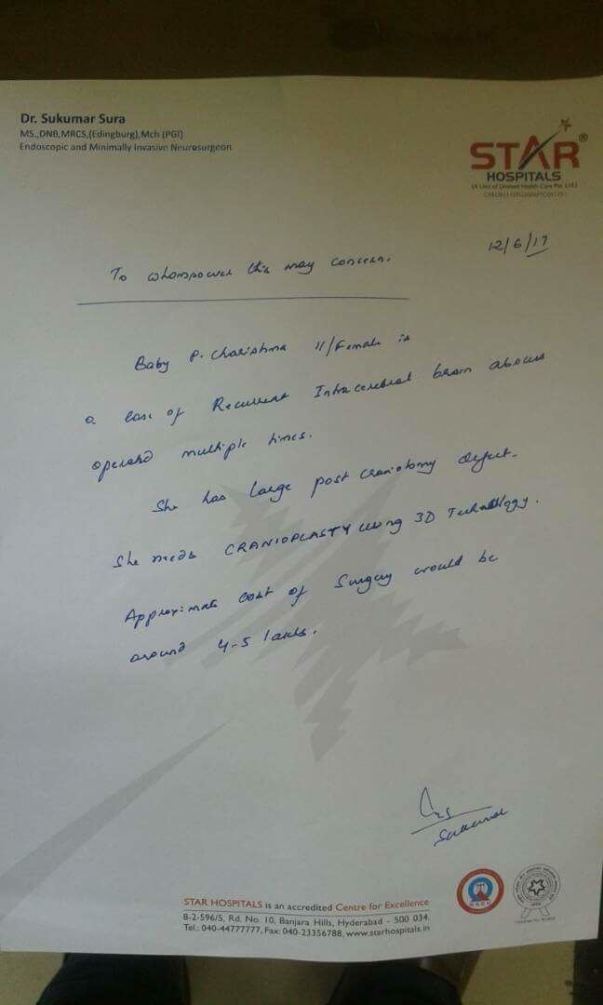 Dr. Sukumar Sura
MS.,DNB,MRCS,(Edingburg),Mch (PGI)
Endoscopic and Minimally Invasive Neurosurgeon
STAR®
HOSPITALS
(A Unit of Unimed Health Care Pvt. Ltd.)
12/6/17
To whomsoever this may concern.
Baby P. Charishma 11/Female is
a case of Recurrent Intracerebral brain abscess
operated multiple times.
She has large post craniotomy defect.
She needs CRANIOPLASTY using 3D Technology.
Approximate cost of Surgery would be
around 4-5 lakhs.
Sukumar
STAR HOSPITALS is an accredited Centre for Excellence
8-2-596/5, Rd. No. 10, Banjara Hills, Hyderabad - 500 034.
Tel.: 040-44777777, Fax: 040-23356788, www.starhospitals.in